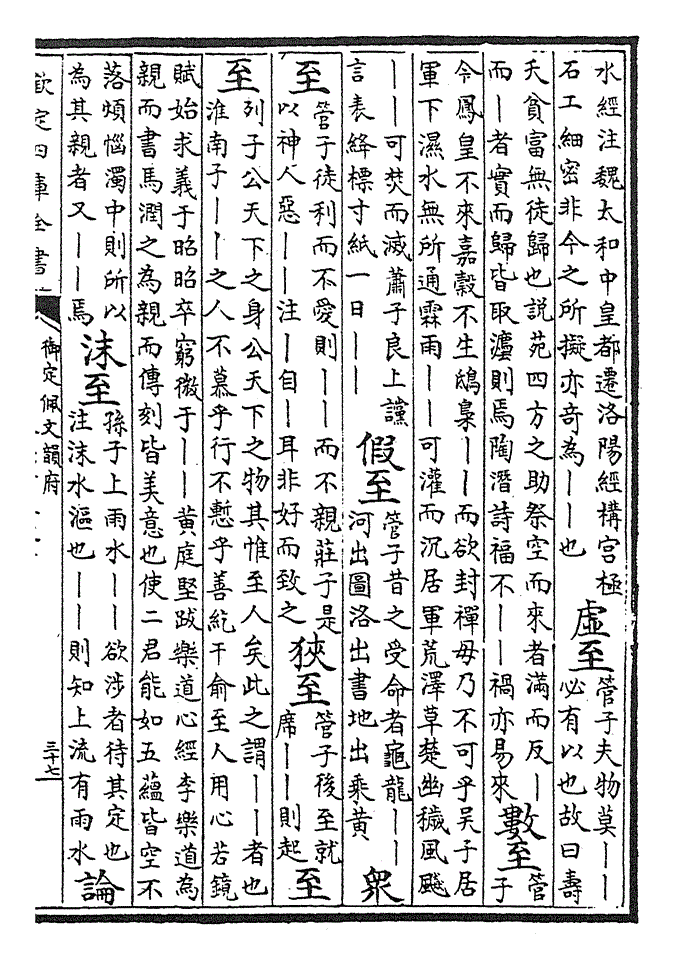 水經注魏太和中皇都遷洛陽經構宮極
石工細密非今之所擬亦奇為||也
虛至
管子夫物莫||
必有以也故曰壽
夭貧富無徒歸也説苑四方之助祭空而來者滿而反|
而|者實而歸皆取灋則焉陶潛詩福不||禍亦易來
數至
管
子
令鳳皇不來嘉穀不生鴟梟||而欲封禪毋乃不可乎吳子居
軍下濕水無所通霖雨||可灌而沉居軍荒澤草楚幽穢風飈
||可焚而滅蕭子良上讜
言表絳標寸紙一日|||
假至
管子昔之受命者龜龍||
河出圖洛出書地出乘黃
眾
至
管子徒利而不愛則||而不親莊子是
以神人惡||注|自|耳非好而致之
狹至
管子後至就
席||則起
至
至
列子公天下之身公天下之物其惟至人矣此之謂||者也
淮南子||之人不慕乎行不慙乎善紇干俞至人用心若鏡
賦始求義于昭昭卒窮微于||黃庭堅跋樂道心經李樂道為
親而書馬潤之為親而傳刻皆美意也使二君能如五蘊皆空不
落煩惱濁中則所以
為其親者又||焉
沫至
孫子上雨水||欲涉者待其定也
注沫水漚也||則知上流有雨水
論
欽定四庫全書
御定佩文韻府
三十七